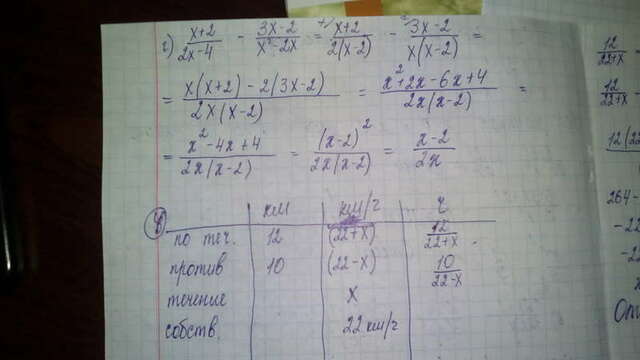 г) x+2/2x-4 - 3x-2/x²-2x = x+2/2(x-2) - 3x-2/x(x-2) =
= x(x+2)-2(3x-2)/2x(x-2) = x²+2x-6x+4/2x(x-2) =
= x²-4x+4/2x(x-2) = (x-2)²/2x(x-2) = x-2/2x
4 км км/г г
по теч. 12 (22+x) 12/22+x
против 10 (22-x) 10/22-x
течение x
собств. 22 км/г
12/22+x
12/22+x -
12(22
264-
-22
-2